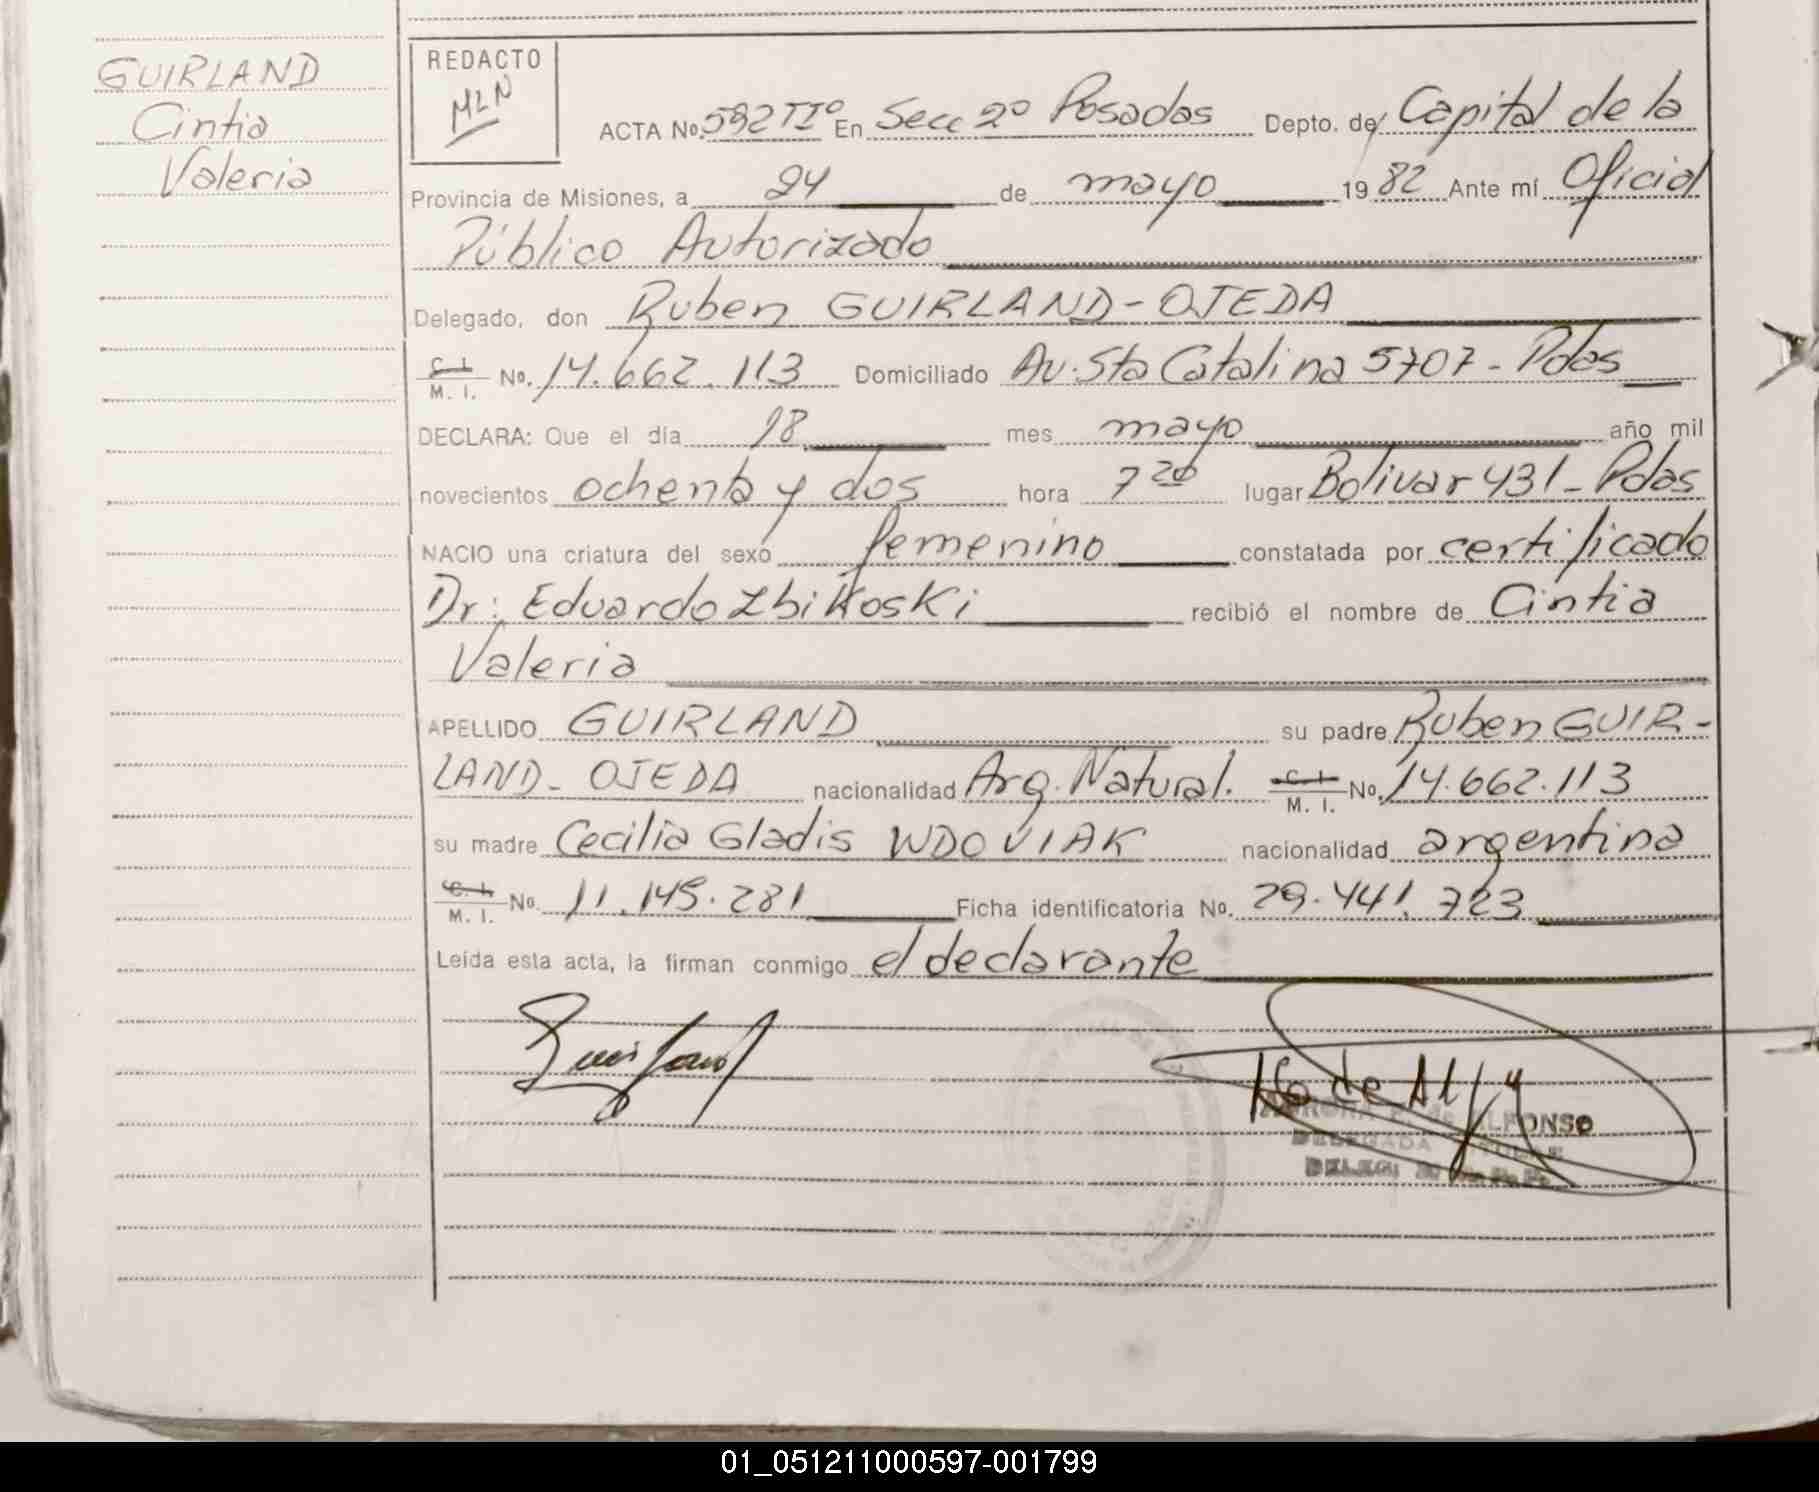 GUIRLAND
Cintia
Valeria
REDACTO
MLN
ACTA No. 592 IIº En Secc 2º Posadas Depto. de Capital de la
Provincia de Misiones, a 24 de mayo 1982 Ante mí Oficial
Público Autorizado
Delegado, don Ruben GUIRLAND-OJEDA
C. I.
M. I. No. 14.662.113 Domiciliado Av. Sta Catalina 5707 - Pdas
DECLARA: Que el día 18 mes mayo año mil
novecientos ochenta y dos hora 7 20 lugar Bolivar 431 - Pdas
NACIO una criatura del sexo femenino constatada por certificado
Dr: Eduardo recibió el nombre de Cintia
Valeria
APELLIDO GUIRLAND su padre Ruben GUIR-
LAND- OJEDA nacionalidad Arg. Natural. C. I.
M. I. No. 14.662.113
su madre Cecilia Gladis WDOVIAK nacionalidad argentina
C. I.
M. I. No. 11.145.281 Ficha identificatoria No. 29.441.723
Leída esta acta, la firman conmigo el declarante
de ALFONSO
DELEGADA
01_051211000597-001799